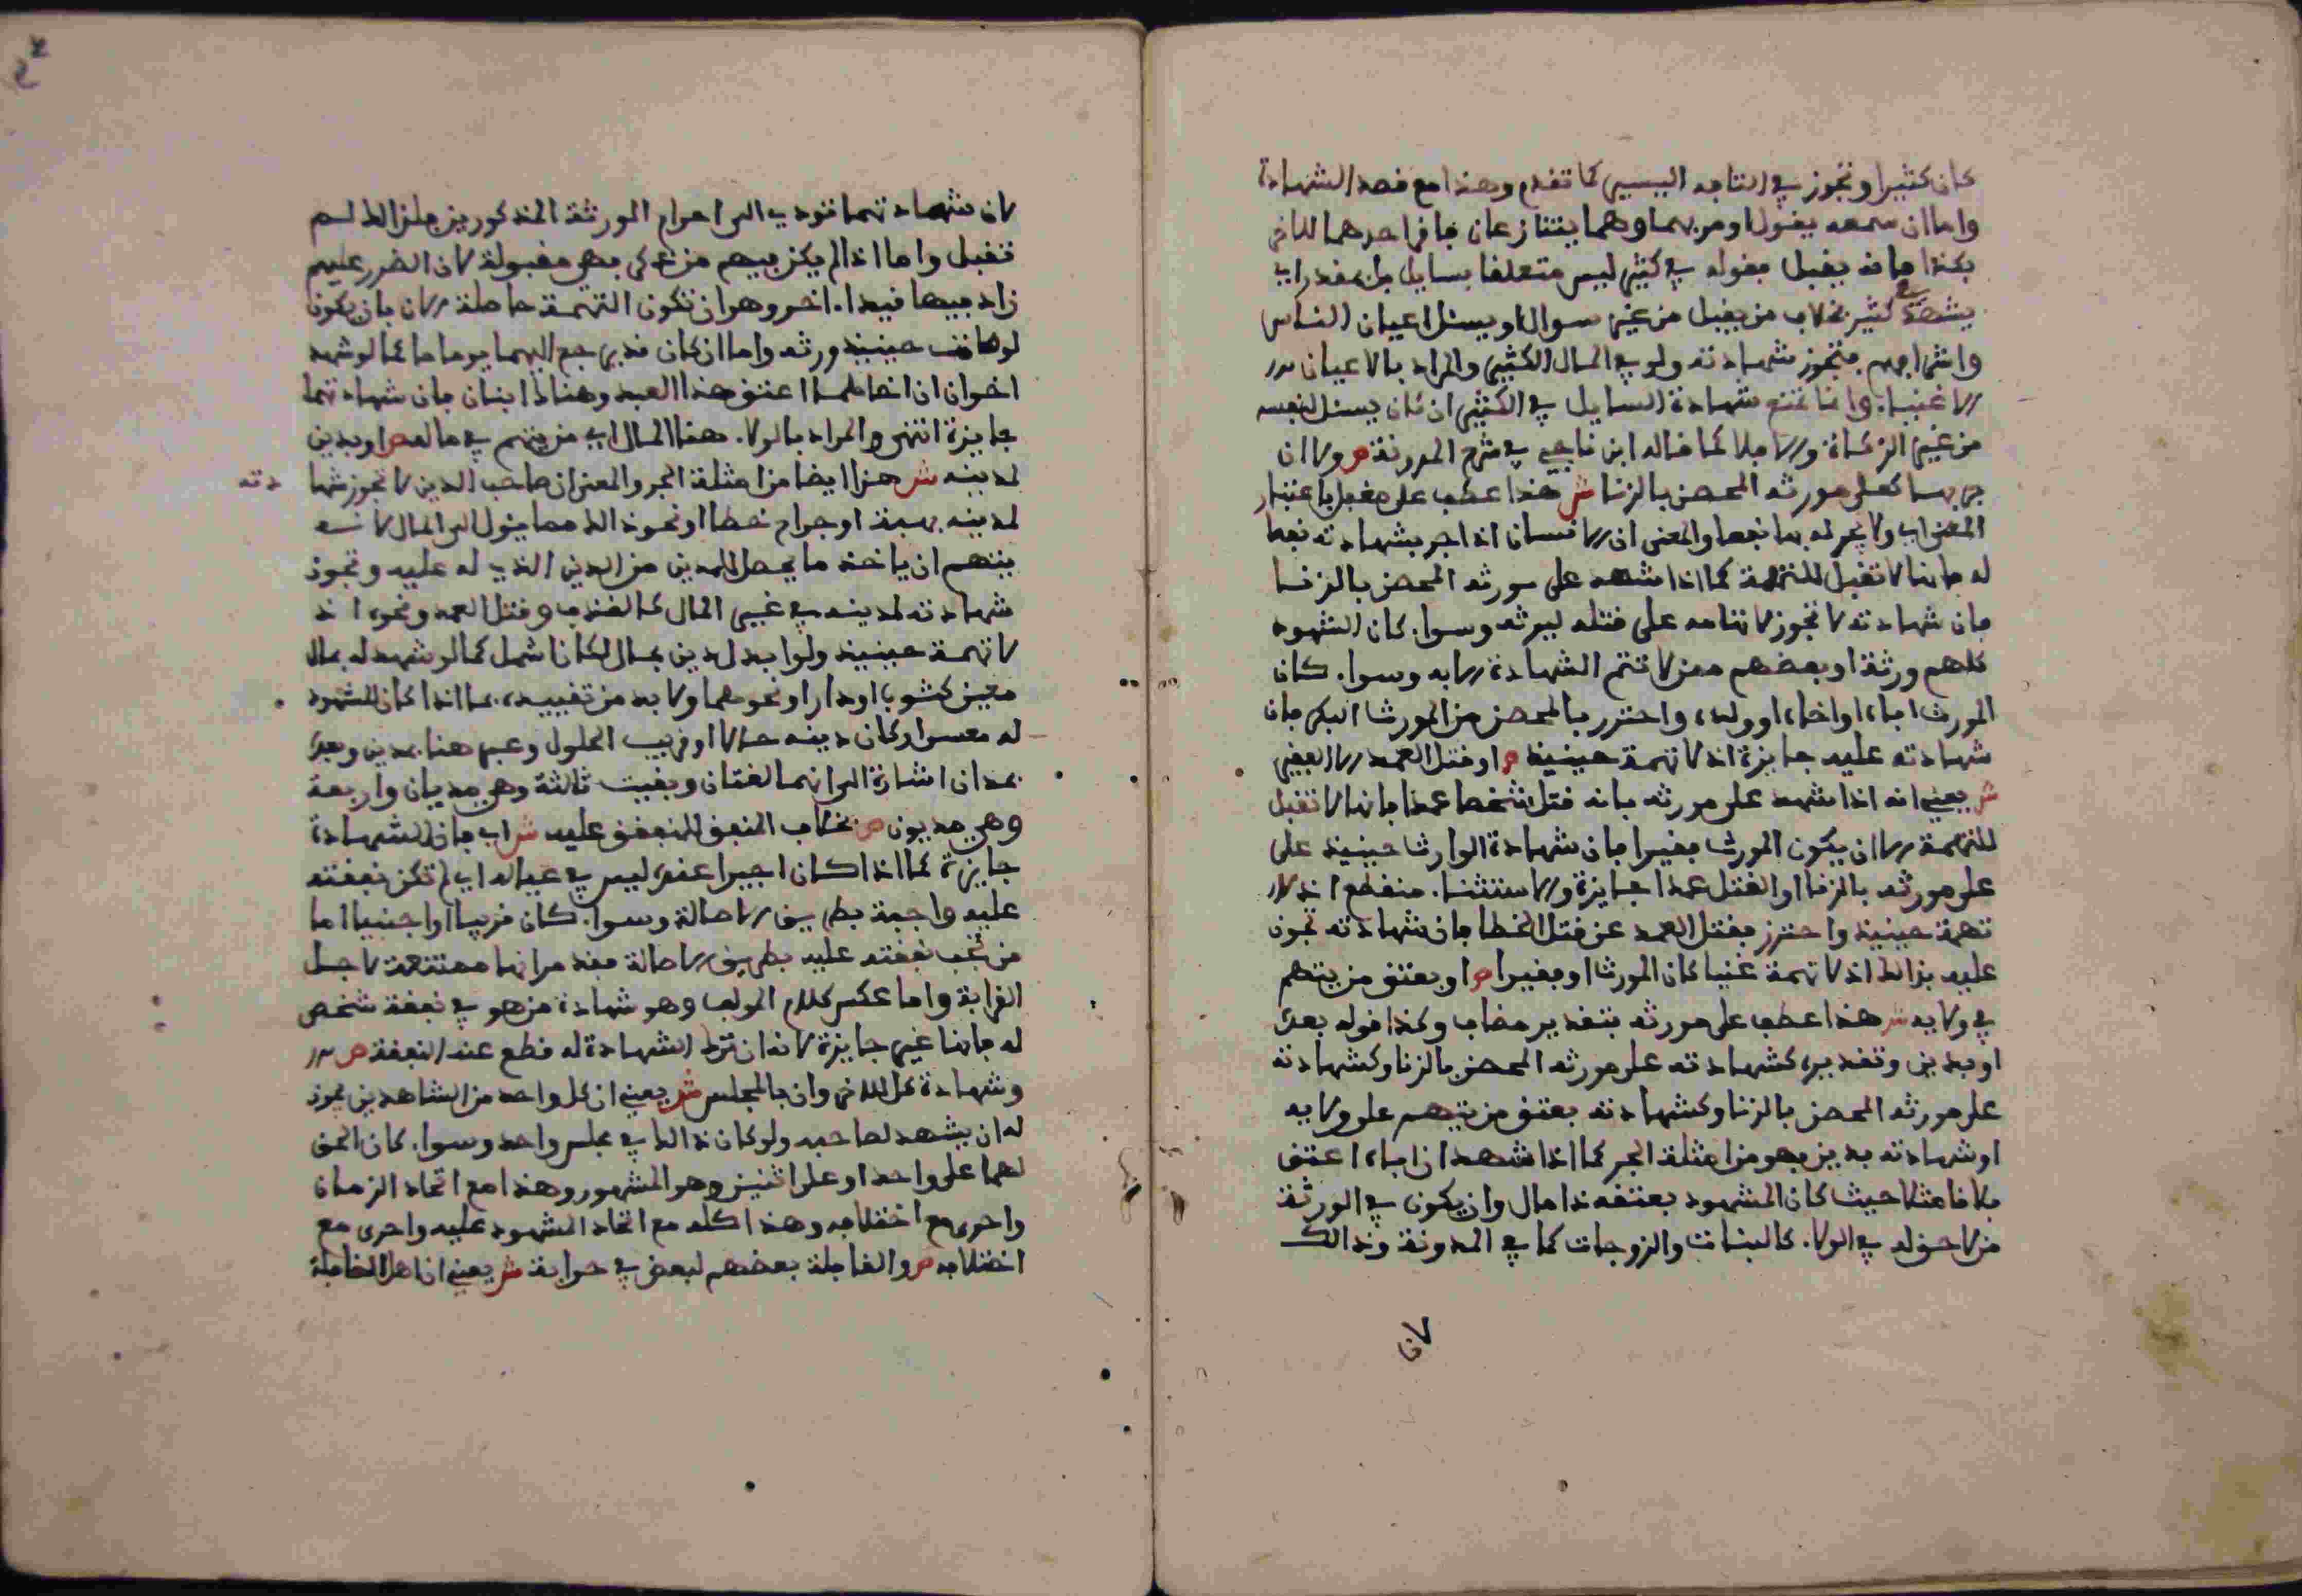 كان كثيرا وتجوز في التافه اليسير كما تقدم وهذا مع قصد الشهادة
واما ان سمعه يقول او مر بهما وهما يتنازعان فاقر احدهما للاخر
بكذا فانه يقبل فقوله في كثير ليس متعلقا بسايل بل بمقدر اي
يشهد في كثير بخلاف من يقبل من غير سوال او يسئل اعيان الناس
واشرافهم فتجوز شهادته ولو في المال الكثير والمراد بالاعيان
الاغنيا. وانما تمنع شهادة السايل في الكثير ان كان يسئل لنفسه
من غير الزكاة والا فلا كما قاله ابن ناجي في شرح المدونة ص ولا ان
جر بها كعلى مورثه المحصن بالزنا ش هذا عطف على مقبل باعتبار
المعنى اي ولا يجر له بها نفعا والمعنى ان الانسان اذا جر بشهادته نفعا
له فانها لا تقبل للتهمة كما اذا شهد على مورثه المحصن بالزنا
فان شهادته لا تجوز لاتهامه على قتله ليرثه وسوا. كان الشهود
كلهم ورثة او بعضهم ممن لا تتم الشهادة الا به وسوا. كان
المورث اباه او اخاه او ولده واحترز بالمحصن من المورث البكر فان
شهادته عليه جايزة اذ لا تهمة حينيذ ص او قتل العمد الا الفقير
ش يعني انه اذا شهد على مورثه بانه قتل شخصا عمدا فانها لا تقبل
للتهمة الا ان يكون المورث فقيرا فان شهادة الوارث حينيذ على
على مورثه بالزنا او القتل عمدا جايزة والاستثنا. منقطع اذ لا
تهمة حينيذ واحترز بقتل العمد عن قتل الخطا فان شهادته تجوز
عليه بذالك اذ لا تهمة غنيا كان المورث او فقيرا ص او بعتق من يتهم
في ولايه ش هذا عطف على مورثه بتقدير مضاف وكذا قوله بعده
او بدين وتقديره كشهادته على مورثه المحصن بالزنا وكشهادته
على مورثه المحصن بالزنا وكشهادته بعتق من يتهم على ولايه
او شهادته بدين فهو من امثلة الجر كما اذا شهد ان اباه اعتق
فلانا مثلا حيث كان المشهود بعتقه ذا مال وان يكون في الورثة
من لا حق له في الولا. كالبنات والزوجات كما في المدونة وذالك
لان
لان شهادتهما تودي الى احرام الورثة المذكورين فلذالك لم
تقبل واما اذا لم يكن فيهم من ذكر فهي مقبولة لان الضرر عليهم
زاد فيها قيدا. اخر وهو ان تكون التهمة حاصلة الان بان يكون
لو مات حينيذ ورثه واما ان كان قد يرجع اليهما يوما ما كما لو شهد
اخوان ان اخاهما اعتق هذا العبد وهناك ابنان فان شهادتهما
جايزة انتهى والمراد بالولا. هنا المال اي من يتهم في ماله ص او بدين
لمدينه ش هذا ايضا من امثلة الجر والمعنى ان صاحب الدين لا تجوز شهادته
لمدينه بهبة او جراح خطا او نحو ذالك مما يئول الى المال لانه
يتهم ان ياخذ ما يحصل للمدين من الدين الذي له عليه وتجوز
شهادته لمدينه في غير المال كالقذف وقتل العمد ونحوه اذ
لا تهمة حينيذ ولو ابدل دين بمال لكان اشمل كما لو شهد له بمال
معين كثوب او دار او نحوهما ولا بد من تقييده بما اذا كان المشهود
له معسرا وكان دينه حالا او قريب الحلول وعبر هنا بمدين وبعد
بمدان اشارة الى انهما لغتان وبقيت ثالثة وهي مديان واربعة
وهي مديون ص بخلاف المنفق للمنفق عليه ش اي فان الشهادة
جايزة كما اذا كان اجيرا عنده ليس في عياله اي لم تكن نفقته
عليه واجبة بطريق الاصالة وسوا. كان قريبا او اجنبيا اما
من تجب نفقته عليه بطريق الاصالة فقد مر انها ممتنعة لاجل
القرابة واما عكس كلام المولف وهو شهادة من هو في نفقة شخص
له فانها غير جايزة لانه ان ترك الشهادة له قطع عنه النفقة ص
وشهادة كل للاخر وان بالمجلس ش يعني ان كل واحد من الشاهدين يجوز
له ان يشهد لصاحبه ولو كان ذالك في مجلس واحد وسوا. كان الحق
لهما على واحد او على اثنين وهو المشهور وهذا مع اتحاد الزمان
واحرى مع اختلافه وهذا كله مع اتحاد المشهود عليه واحرى مع
اختلافه ص والقافلة بعضهم لبعض في حرابة ش يعني ان اهل القافلة